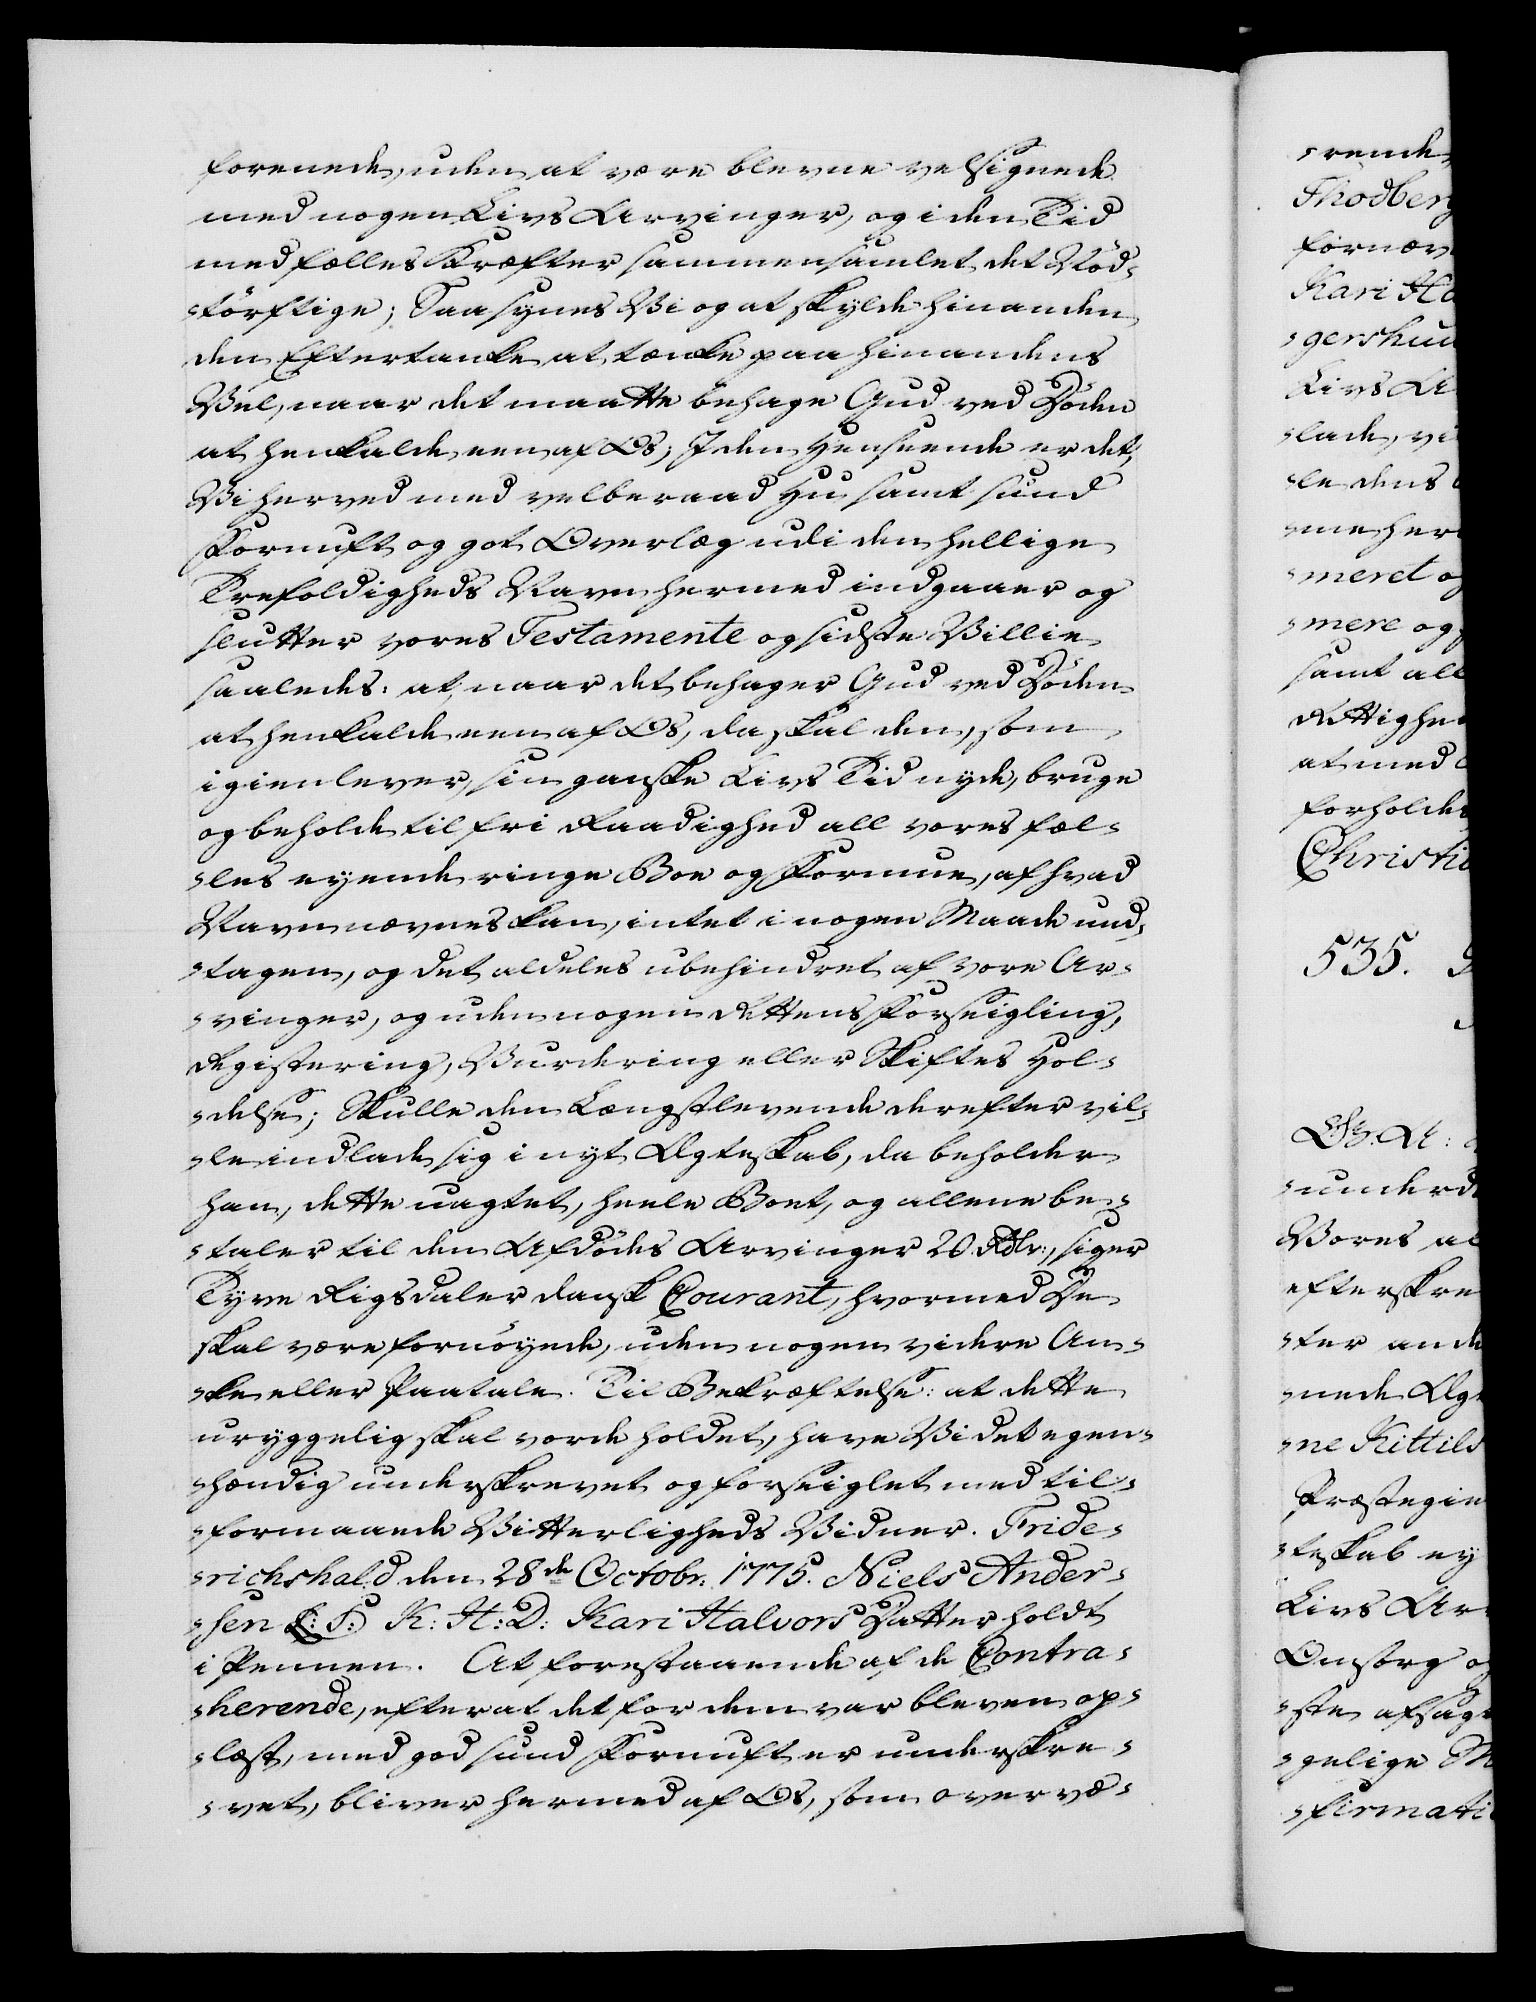 forenede, uden at være blevne velsignede
med nogen Livs Arvinger, og i den Tid
med fælles Kræfter sammensamlet det Nöd-
-törftige; Saa synes Vi og at skylde hinanden
den Eftertanke at tænke paa hinandens
Vel, naar det maatte behage Gud ved Döden
at henkalde een af Os; I den Henseende er det,
Vi herved med velberaad Hu samt sund
Fornuft og got Overlæg udi den hellige
Trefoldigheds Navn hermed indgaaer og
slutter vores Testamente og sidste Villie
saaledes: at, naar det behager Gud ved Döden
at henkalde een af Os, da skal den, som
igienlever, sin ganske Livs Tid nyde, bruge
og beholde til fri Raadighed all vores fæl-
-les eyende ringe Boe og Formue, af hvad
Navn nævnes kan, intet i nogen Maade und-
-tagen, og det aldeles ubehindret af vore Ar-
-vinger, og uden nogen Rettens Forseigling,
Registering, Vurdering eller Skiftes Hol-
-delse; Skulle den Længstlevende derefter vil-
-le indlade sig i nyt Ægteskab, da beholder
han, dette uagtet, heele Boet, og allene be-
-taler til den Afdödes Arvinger 20 Rdlr:, siger
Tyve Rigsdaler dansk Courant, hvormed De
skal være fornöyede, uden nogen videre An-
-ke eller Paatale. Til Bekræftelse: at dette
uryggelig skal vorde holdet, have Vi det egen-
-hændig underskrevet og forseiglet med til-
-formaaede Vitterligheds Vidner. Fride-
-richshald den 28de Octobr. 1775. Niels Ander-
-sen L: S: K: H: D: Kari Halvors Datter holdt
i Pennen. At forestaaende af de Contra-
-herende, efter at det for dem var bleven op-
-læst, med god sund Fornuft er underskre-
-vet, bliver hermed af Os, som overvæ-
-rende,
Thodberg
fornæv
Kari Ha
-gershu
Livs A
-lade, vi
-le dens
-me her
-meret o
-mere og
samt all
Rettighe
at med
forholdes
Christia
535.
G. A:
-underd
Vores al
efterskre
-ter and
-nede Ægt
-ne Kittils
Præstegie
-teskab ey
Livs Ar
Omsorg o
-ste afsag
-gelige M
-firmati